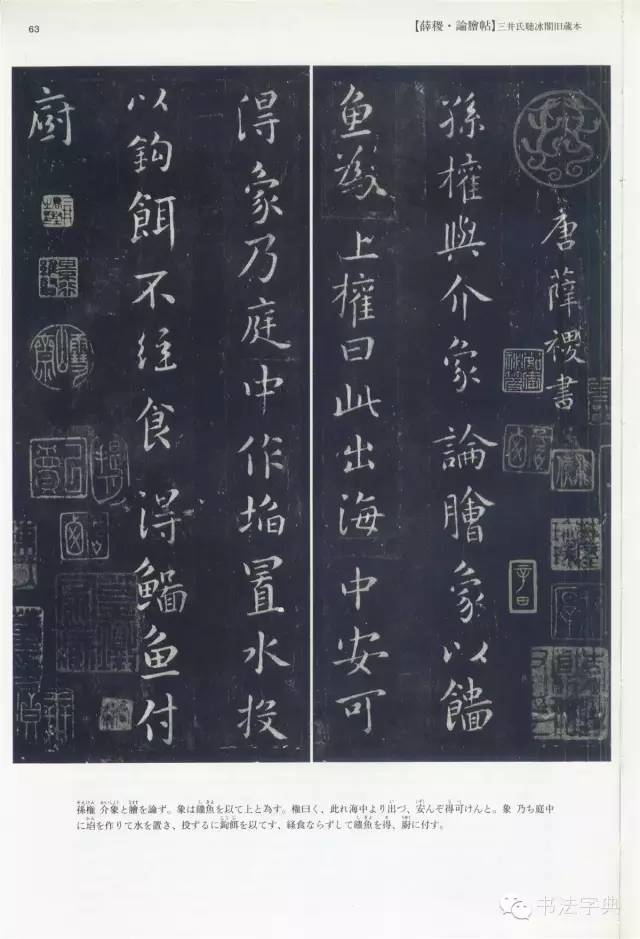 63
【薛稷・論膾帖】三井氏聴冰閣旧蔵本
唐薛稷書
孫權與介象論膾象以鯔
魚為上權曰此出海中安可
得象乃庭中作埳置水投
以鈎餌不经食得鯔魚付
廚
孫権 介象と膾を論ず。象は鯔魚を以て上と為す。権曰く、此れ海中より出づ、安んぞ得可けんと。象 乃ち庭中
に埳を作りて水を置き、投ずるに鉤餌を以てす、経食ならずして鯔魚を得、廚に付す。
书法字典